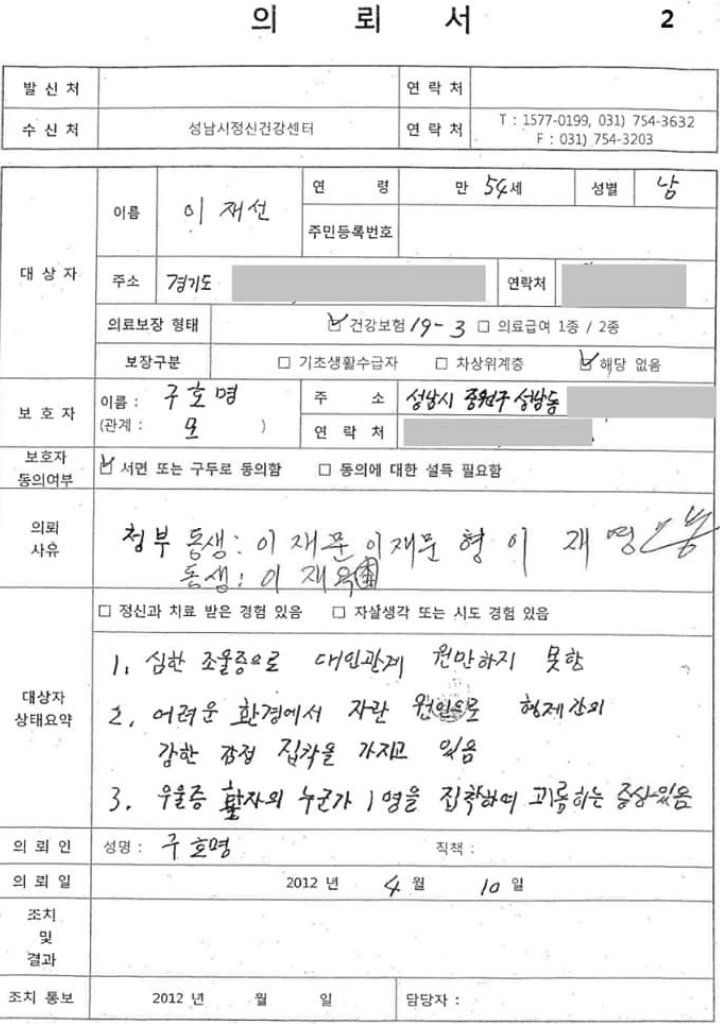 의 뢰 서 2
발 신 처 연 락 처
수 신 처 성남시정신건강센터 연 락 처 T : 1577-0199, 031) 754-3632
F : 031) 754-3203
대 상 자 이름 이 재선 연 령 만 54세 성별 남
주민등록번호
주소 경기도 연락처
의료보장 형태 ☑ 건강보험 19-3 □ 의료급여 1종 / 2종
보장구분 □ 기초생활수급자 □ 차상위계층 ☑ 해당 없음
보 호 자 이름 : 구호명 주 소 성남시 중원구 성남동
(관계 : 모 ) 연 락 처
보호자 동의여부 ☑ 서면 또는 구두로 동의함 □ 동의에 대한 설득 필요함
의뢰 사유 첨부 동생: 이 재문 이재문 형 이 재영
동생: 이 재옥
대상자 상태요약 □ 정신과 치료 받은 경험 있음 □ 자살생각 또는 시도 경험 있음
1. 심한 조울증으로 대인관계 원만하지 못함
2. 어려운 환경에서 자란 원인으로 형제간의
강한 감정 집착을 가지고 있음
3. 우울증 환자의 누군가 1명을 집착하여 괴롭히는 증상있음
의 뢰 인 성명 : 구호명 직책 :
의 뢰 일 2012 년 4 월 10 일
조치 및 결과
조치 통보 2012 년 월 일 담당자 :